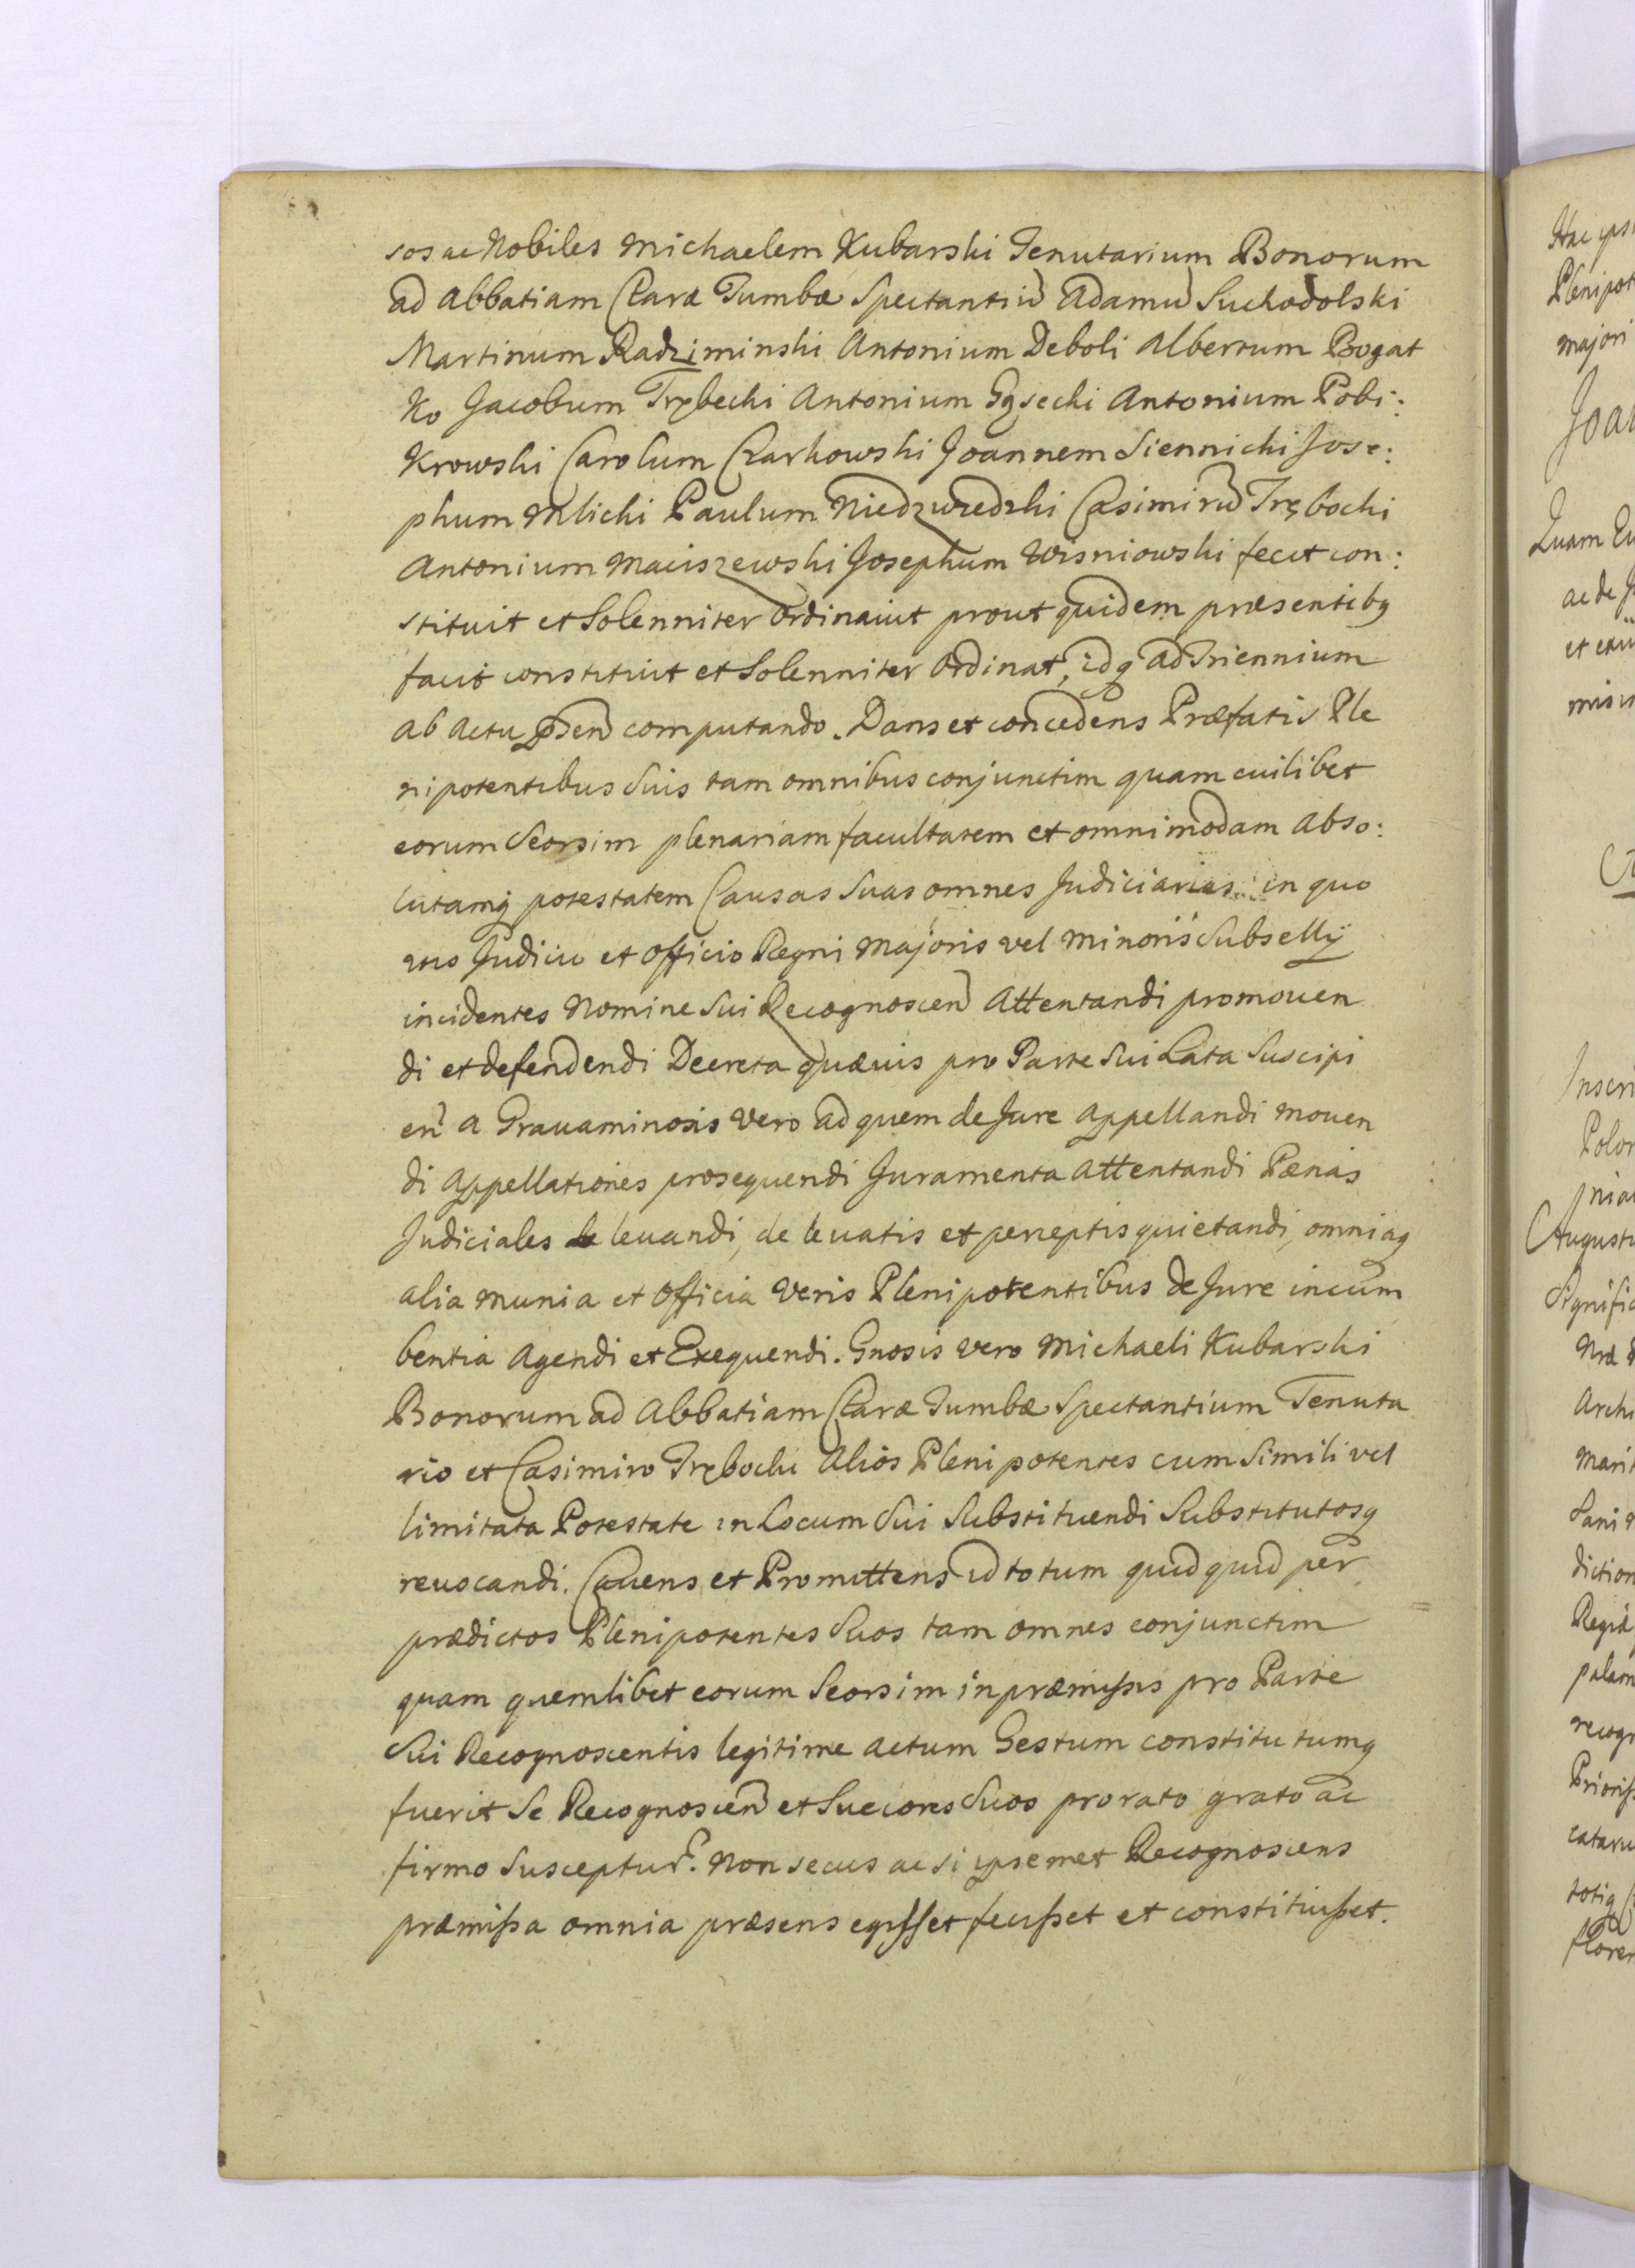 sos ac Nobiles Michaelem Kubarski Tenutarium Bonorum
ad Abbatiam Claræ Tumbæ Spectantiu Adamu Suchodolski
Martinum Radziminski Antonium Deboli Albertum Bogat
Ko Jacobum Trębecki Antonium Gąsecki Antonium Pobi:
Krowski Carolum Czarkowski Joannem Siennicki Jose:
phum Mlicki Paulum Niedzwiedzki Casimiru Trębocki
Antonium Maciszewski Josephum Wisniowski fecit con:
stituit et Solenniter Ordinauit prout quidem præsentibq
facit constituit et Solenniter Ordinat, idq ad Triennium
ab actu præsen computando. Dans et concedens Præfatis Ple
nipotentibus Suis tam omnibus conjunctim quam cuilibet
eorum Seorsim plenariam facultatem et omnimodam abso:
lutamq potestatem Causas Suas omnes Judiciarias in quo
vis Judicio et Officio Regni Majoris vel Minoris Subsellij
incidentes Nomine Sui Recognoscen Attentandi promouen
di et defendendi Decreta quævis pro Parte Sui Lata Suscipi
en a Grauaminosis Vero ad quem de Jure appellandi mouen
di Appellationes prosequendi Juramenta attentandi Pænas
Judiciales leuandi, de leuatis et perceptis quietandi, omniaq
alia munia et Officia Veris Plenipotentibus de Jure incum
bentia Agendi et Exequendi. Gnosis vero Michaeli Kubarski
Bonorum ad Abbatiam Claræ Tumbæ Spectantium Tenuta
rio et Casimiro Trębocki Alios Plenipotentes cum Simili vel
limitata Potestate in Locum Sui Substituendi Substitutosq
reuocandi. Cauens et Promittens id totum quidquid per
prædictos Plenipotentes Suos tam omnes conjunctim
quam quemlibet eorum Seorsim in præmissis pro Parte
Sui Recognoscentis legitime actum Gestum constitutumq
fuerit Se Recognoscen et Succores Suos pro rato grato ac
firmo Suscептur. Non secus ac si ipsemet Recognoscens
præmissa omnia præsens egisset fecisset et constituisset.